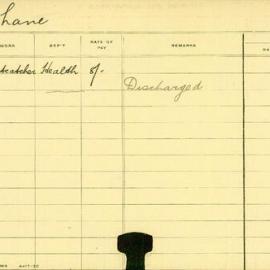 hane
WORK DEP'T RATE OF PAY REMARKS
catcher Health 8/-
Discharged